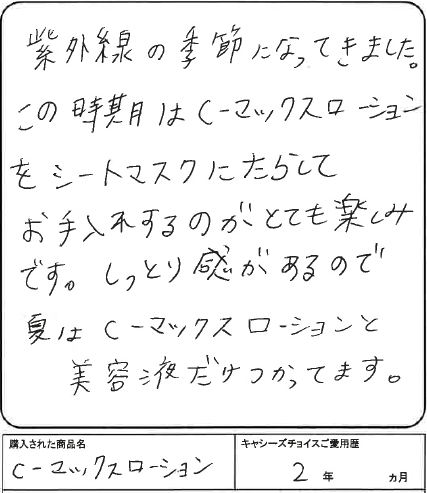 紫外線の季節になってきました。
この時期はC-マックスローション
をシートマスクにたらして
お手入れするのがとても楽しみ
です。しっとり感があるので
夏はC-マックスローションと
美容液だけつかってます。
購入された商品名
C-マックスローション
キャシーズチョイスご愛用歴
2年　ヵ月